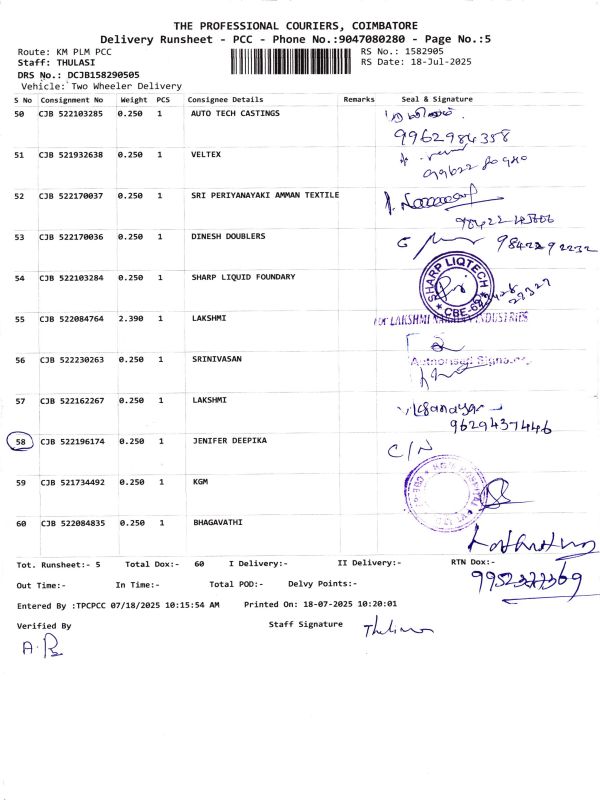 THE PROFESSIONAL COURIERS, COIMBATORE
Delivery Runsheet - PCC - Phone No.:9047080280 - Page No.:5
Route: KM PLM PCC RS No.: 1582905
Staff: THULASI RS Date: 18-Jul-2025
DRS No.: DCJB158290505
Vehicle: Two Wheeler Delivery
S No Consignment No Weight PCS Consignee Details Remarks Seal & Signature
50 CJB 522103285 0.250 1 AUTO TECH CASTINGS
9962984358
51 CJB 521932638 0.250 1 VELTEX
52 CJB 522170037 0.250 1 SRI PERIYANAYAKI AMMAN TEXTILE
53 CJB 522170036 0.250 1 DINESH DOUBLERS 9842292232
54 CJB 522103284 0.250 1 SHARP LIQUID FOUNDARY SHARP LIQTECH
55 CJB 522084764 2.390 1 LAKSHMI LAKSHMI INDUSTRIES
56 CJB 522230263 0.250 1 SRINIVASAN
57 CJB 522162267 0.250 1 LAKSHMI
9629437446
58 CJB 522196174 0.250 1 JENIFER DEEPIKA C/N
59 CJB 521734492 0.250 1 KGM
60 CJB 522084835 0.250 1 BHAGAVATHI
Tot. Runsheet:- 5 Total Dox:- 60 I Delivery:- II Delivery:- RTN Dox:-
Out Time:- In Time:- Total POD:- Delvy Points:-
Entered By :TPCPCC 07/18/2025 10:15:54 AM Printed On: 18-07-2025 10:20:01
Verified By Staff Signature